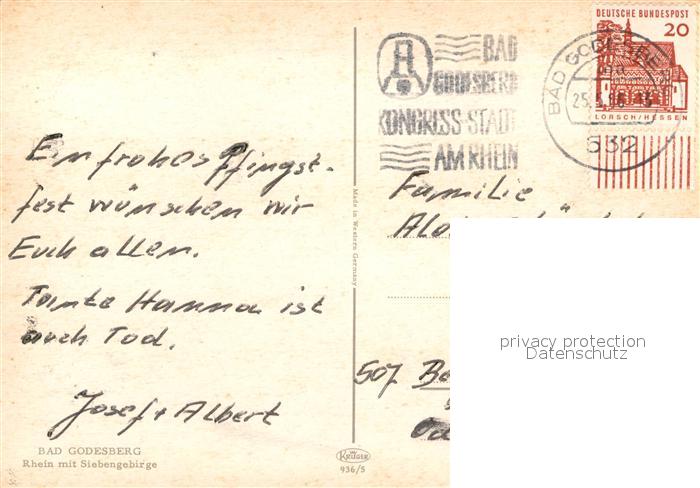 Ein frohes Pfingst-
fest wünschen wir
Euch allen.
Tante Hanna ist
auch Tod.
Josef + Albert
BAD GODESBERG
Rhein mit Siebengebirge
Made in Western Germany
KRÜGER
936/5
BAD
GODESBERG
KONGRESS-STADT
AM RHEIN
BAD GODESBERG
25.5.66
532
DEUTSCHE BUNDESPOST
20
LORSCH/HESSEN
Familie
507
privacy protection
Datenschutz